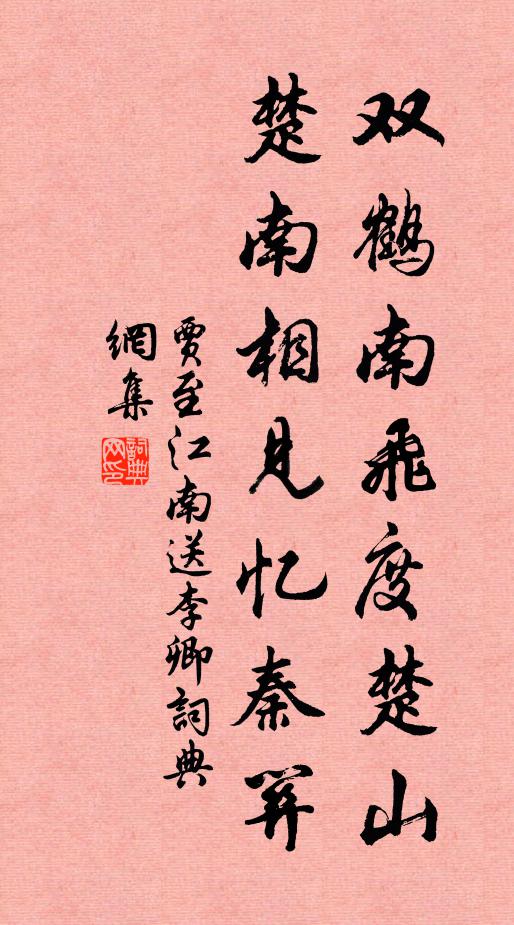 双鹤南飞度楚山
楚南相见忆秦关
贾至江南送李卿詞典
網集
詞典
网印